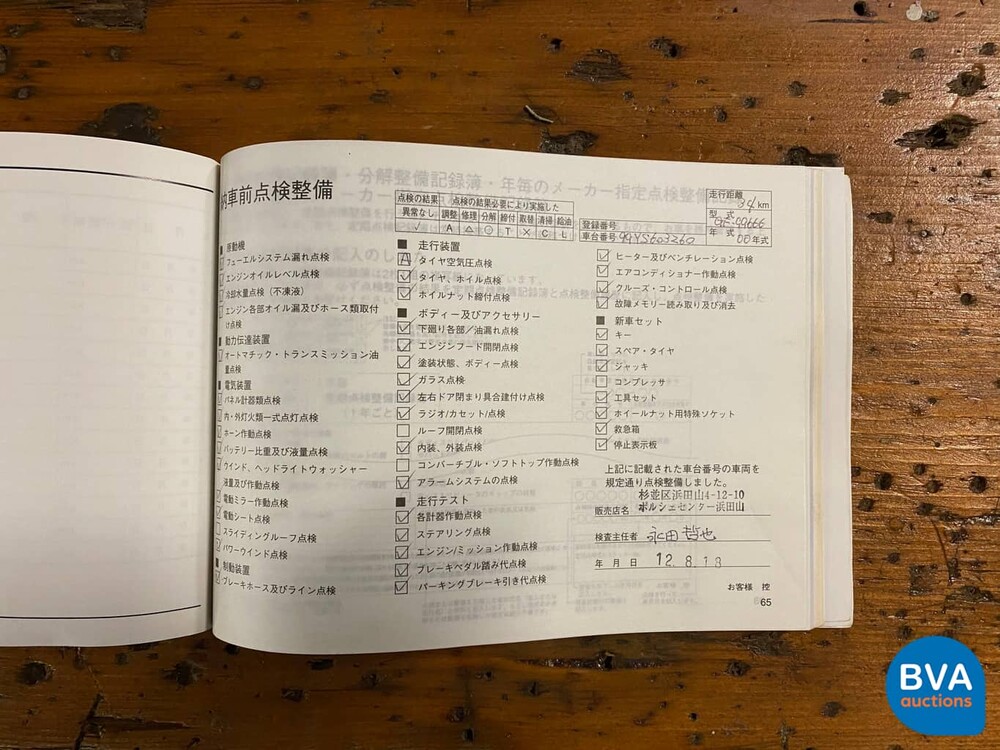 納車前点検整備
点検の結果 点検の結果必要により実施した
異常なし 調整 修理 分解 締付 取替 清掃 給油
✓ A △ ○ T × C L
走行距離 34 km
登録番号 型式
年式 00年式
車台番号 99YS603260
■ 原動機
フューエルシステム漏れ点検
エンジンオイルレベル点検
冷却水量点検（不凍液）
エンジン各部オイル漏及びホース類取付
け点検
■ 動力伝達装置
オートマチック・トランスミッション油
量点検
■ 電気装置
パネル計器類点検
内・外灯火類一式点灯点検
ホーン作動点検
バッテリー比重及び液量点検
ウインド、ヘッドライトウォッシャー
液量及び作動点検
電動ミラー作動点検
電動シート点検
スライディングルーフ点検
パワーウインド点検
■ 制動装置
ブレーキホース及びライン点検
■ 走行装置
A タイヤ空気圧点検
タイヤ、ホイル点検
ホイルナット締付点検
■ ボディー及びアクセサリー
下廻り各部／油漏れ点検
エンジンフード開閉点検
塗装状態、ボディー点検
ガラス点検
左右ドア閉まり具合建付け点検
ラジオ/カセット/点検
ルーフ開閉点検
内装、外装点検
コンバーチブル・ソフトトップ作動点検
アラームシステムの点検
■ 走行テスト
各計器作動点検
ステアリング点検
エンジン/ミッション作動点検
ブレーキペダル踏み代点検
パーキングブレーキ引き代点検
ヒーター及びベンチレーション点検
エアコンディショナー作動点検
クルーズ・コントロール点検
故障メモリー読み取り及び消去
■ 新車セット
キー
スペア・タイヤ
ジャッキ
コンプレッサ
工具セット
ホイールナット用特殊ソケット
救急箱
停止表示板
上記に記載された車台番号の車両を
規定通り点検整備しました。
杉並区浜田山4-12-10
販売店名 ポルシェセンター浜田山
検査主任者 永田哲也
年 月 日 12.8.18
お客様 控
65
BVA
auctions